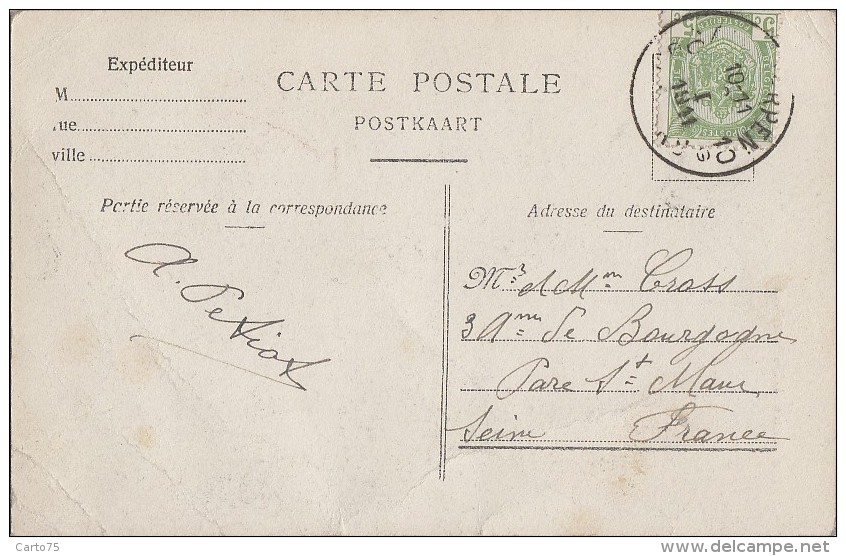 Expéditeur
M
rue
ville
CARTE POSTALE
POSTKAART
Partie réservée à la correspondance
Adresse du destinataire
A. Petiot
Mr & Mme Cross
3 Anue de Bourgogne
Parc St Maur
Seine France
5 5
10-11
1
10
Carto75
www.delcampe.net